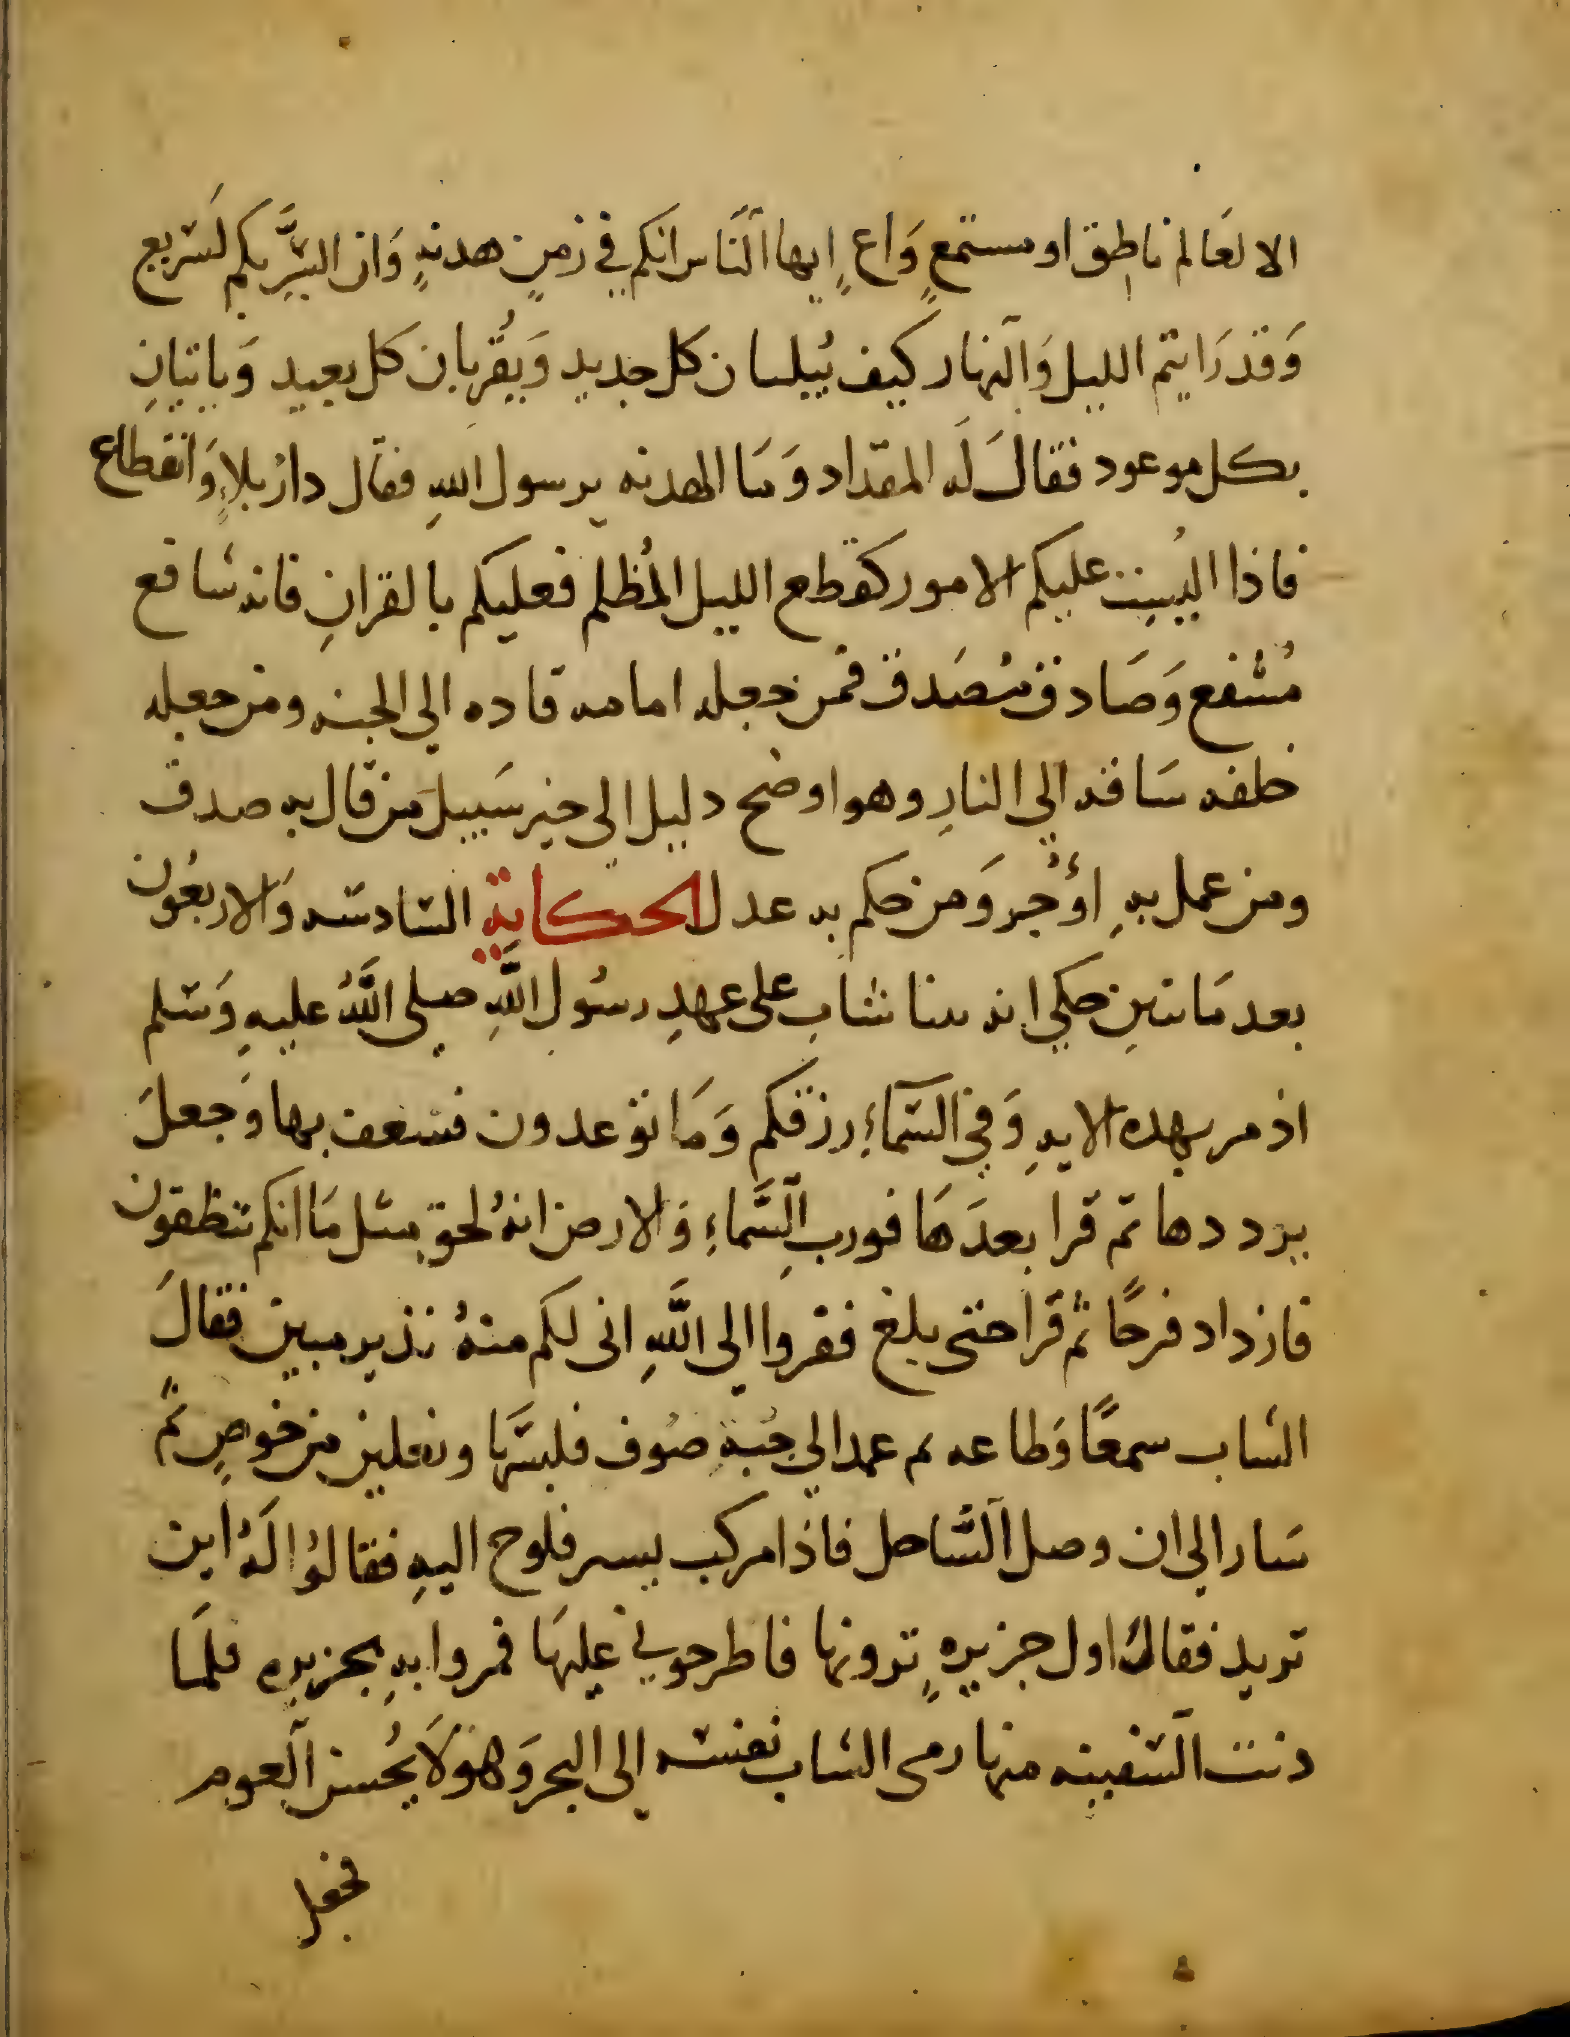 الا لعَالم ناطق او مستمعٍ وَاعٍ ايها النَّاس انكم في زمنِ هدنةٍ وَان السَّير بكم لسَريع
وَقد رَايتم الليل وَالنهار كيف يُبليان كل جديد وَيُقربان كل بعيد وَياتيانِ
بكل موعود فقالَ لَه المقداد وَمَا الهدنه يرسول اللهِ فقال دار بلاءٍ وَانقطاع
فاذا البُسِت عليكم الامور كقطع الليل المُظلم فعليكم بالقرانِ فانه شافع
مُشفع وَصَادق مُصَدق فمن جعله امامه قاده الي الجنه ومن جعله
خلفه سَاقه الي النارِ وهو اوضح دليل الى خير سَبيل من قال به صدق
ومن عمل بهِ اُؤجر وَمن حكم به عدل الحكاية السَادسَه وَالاربعُون
بعد مَاتينِ حكي انه بينا شاب على عهدِ رسُول اللَّهِ صلى اللَّهُ عليهِ وَسَلم
اذ مر بهده الايهِ وَفي السَّمَاءِ رزقكم وَمَا توعدون فشعف بها وَجعلَ
يرددها ثم قرا بعدَهَا فورب السَّماءِ وَالارض انهُ لحق مثل مَا انكم تنطقون
فازداد فرحًا ثم قرا حتى بلغ ففروا الي اللَّهِ انى لكم منهُ نذير مبين فقالَ
الشاب سمعًا وَطاعه ثم عمد الي جُبةِ صُوف فلبسَها ونعلين من خُوصٍ ثم
سَار الي ان وصل السَّاحل فاذا مركب يسير فلوح اليهِ فقالوُا لَهُ اين
تريد فقال اول جزيرهٍ ترونها فاطرحوني عليهَا فمروا بهِ بجزيره فلمَا
دنت السَفينه منها رمى الشاب نفسَه الى البحر وَهوَ لَا يُحسن العوم
فجعل